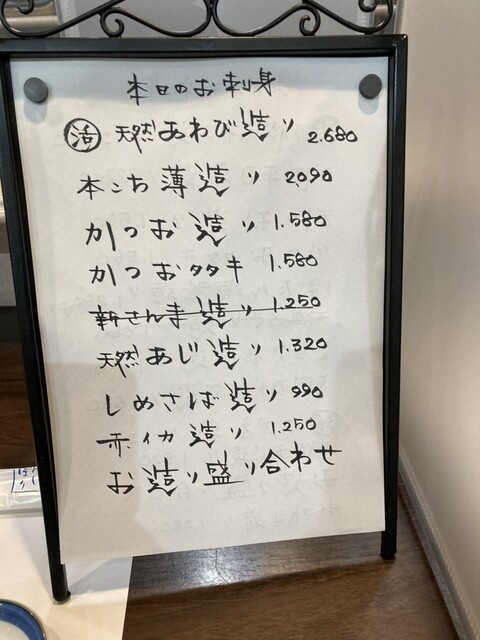 本日のお刺身
活 天然あわび造り 2.680
本こち薄造り 2090
かつお造り 1.580
かつおタタキ 1.580
新さんま造り 1.250
天然あじ造り 1.320
しめさば造り 990
赤イカ造り 1.250
お造り盛り合わせ